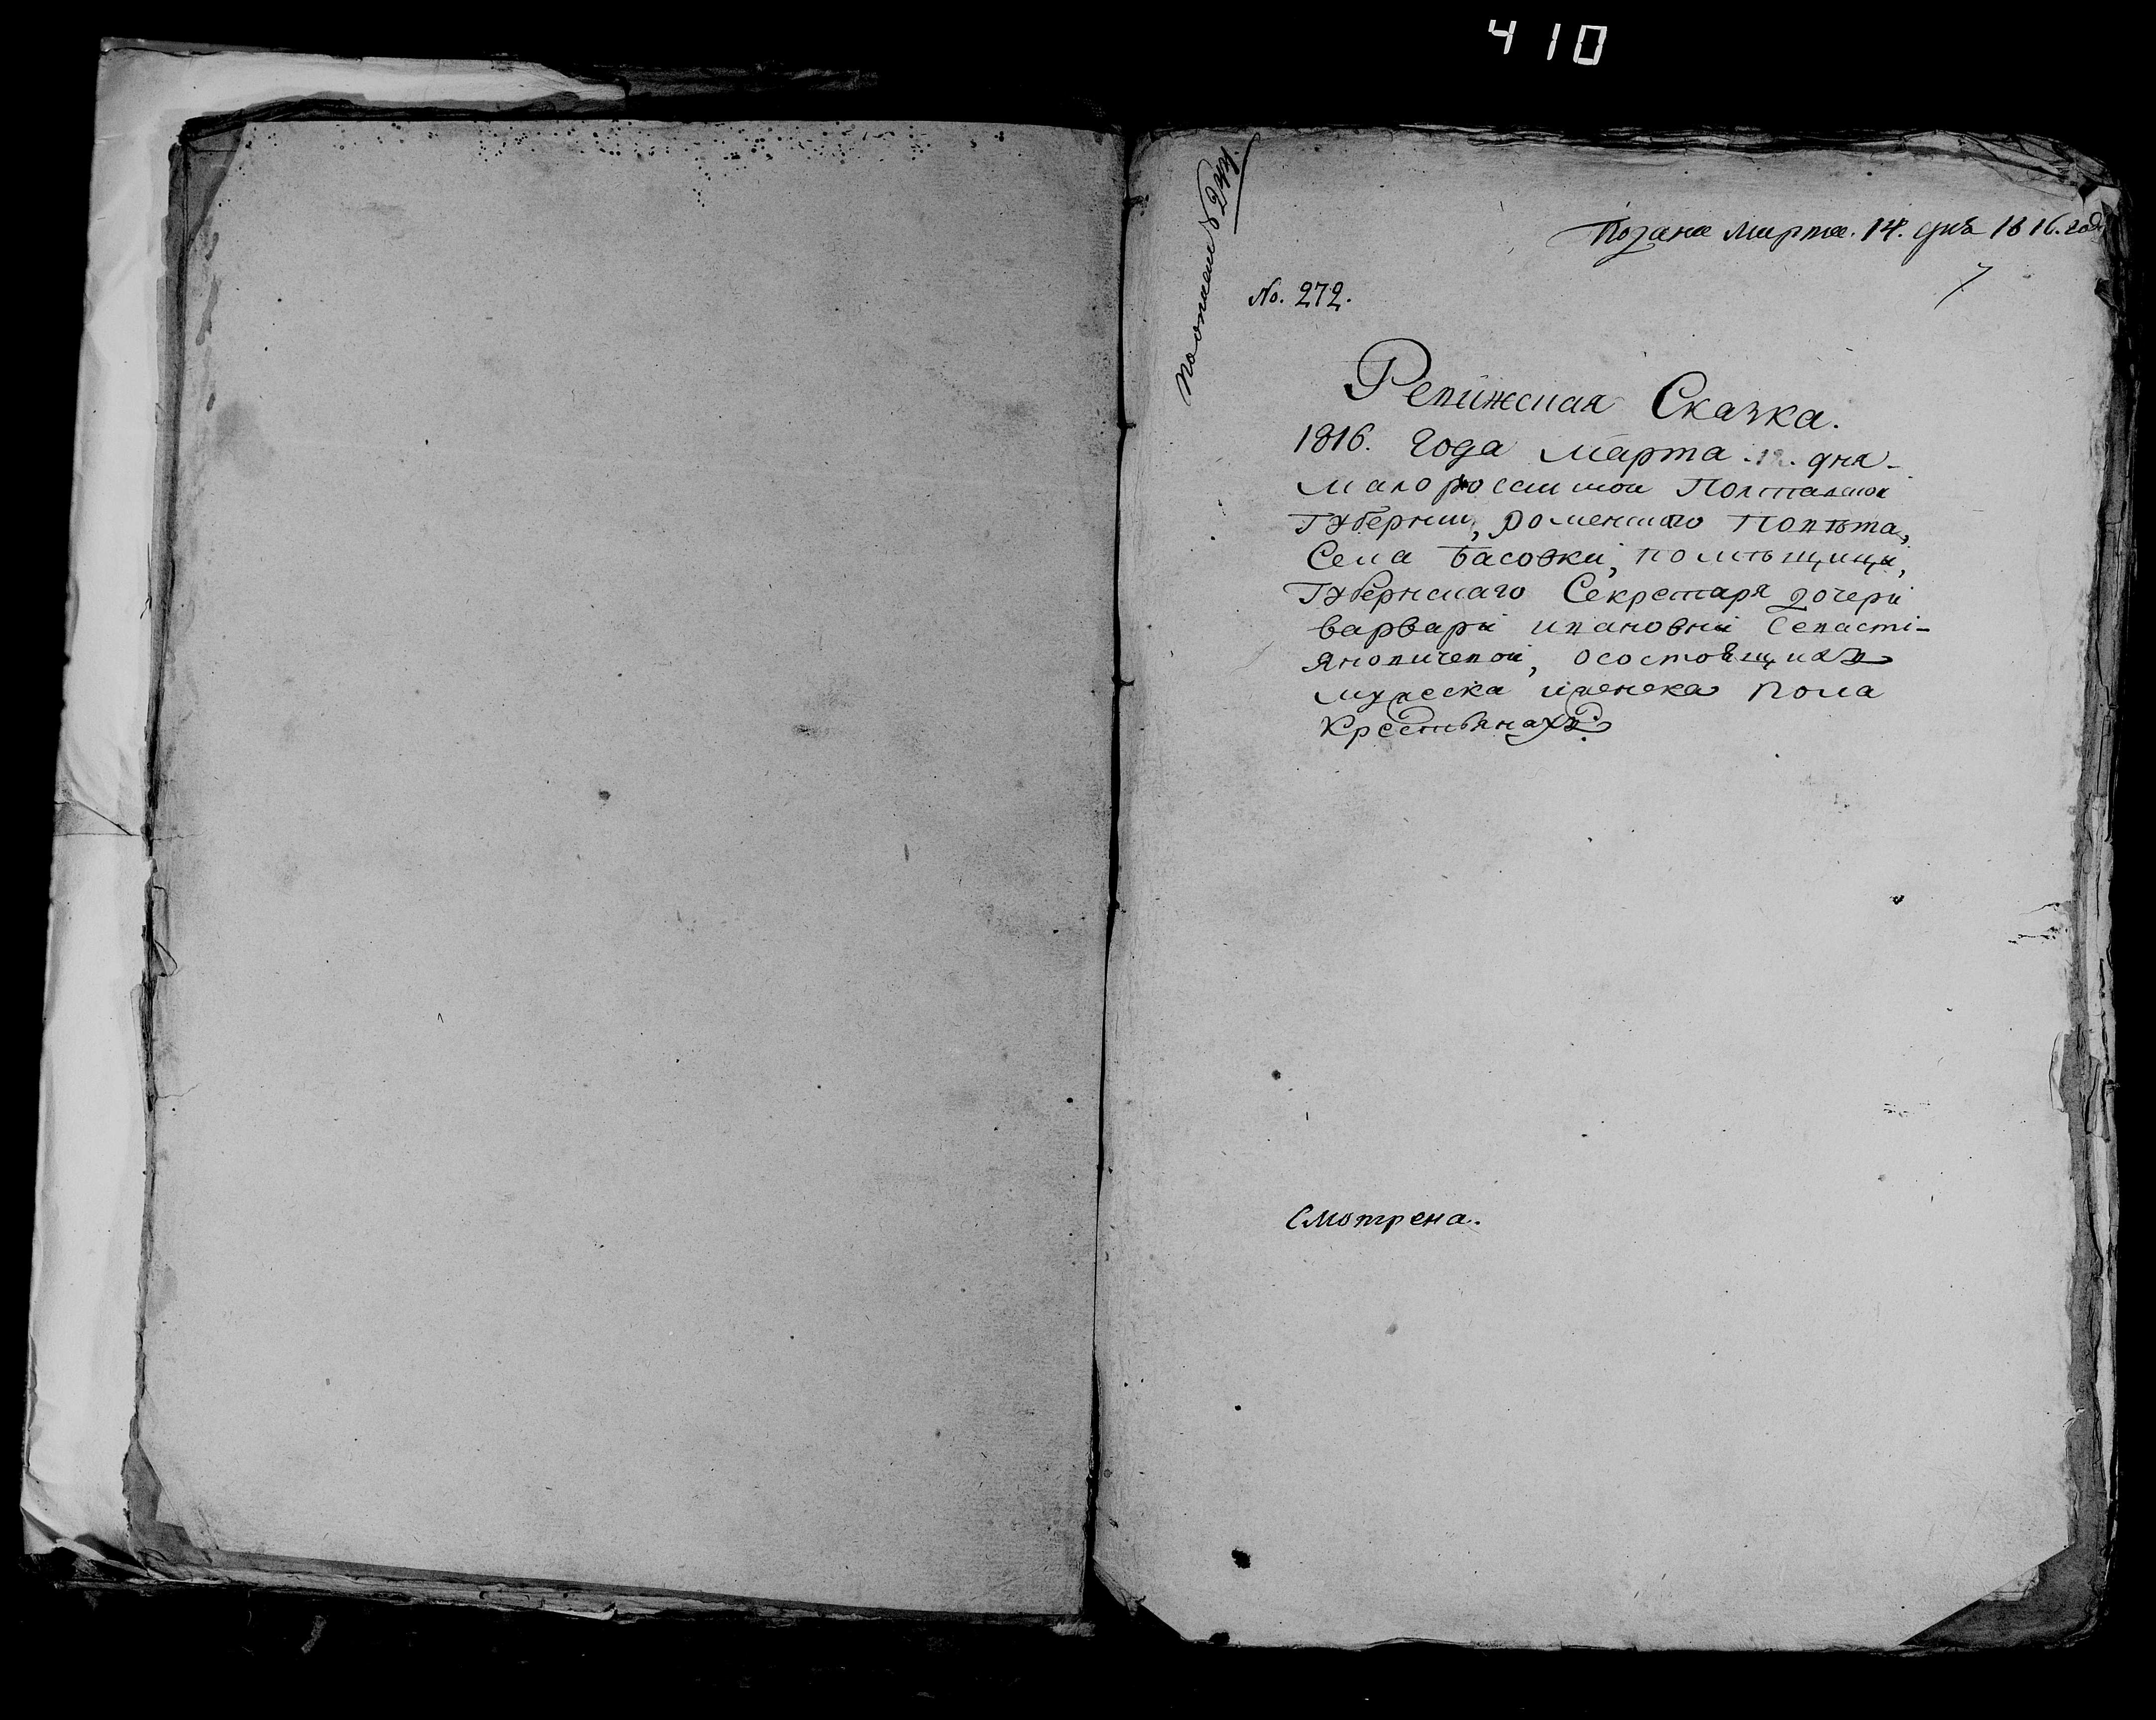 410
Подана Марта. 14. дня 1816. года
No. 272.
Ревижская Сказка.
1816. Года Марта .12. дня
Малороссийской Полтавской
Губернии, Роменского Повѣта,
Села Басовки, помѣщици,
Губернскаго Секретаря дочери
варвари ивановни Севасти-
яновичевой, осостоящихъ
мужеска иженска пола
Крестьянахъ.
Смотрена.